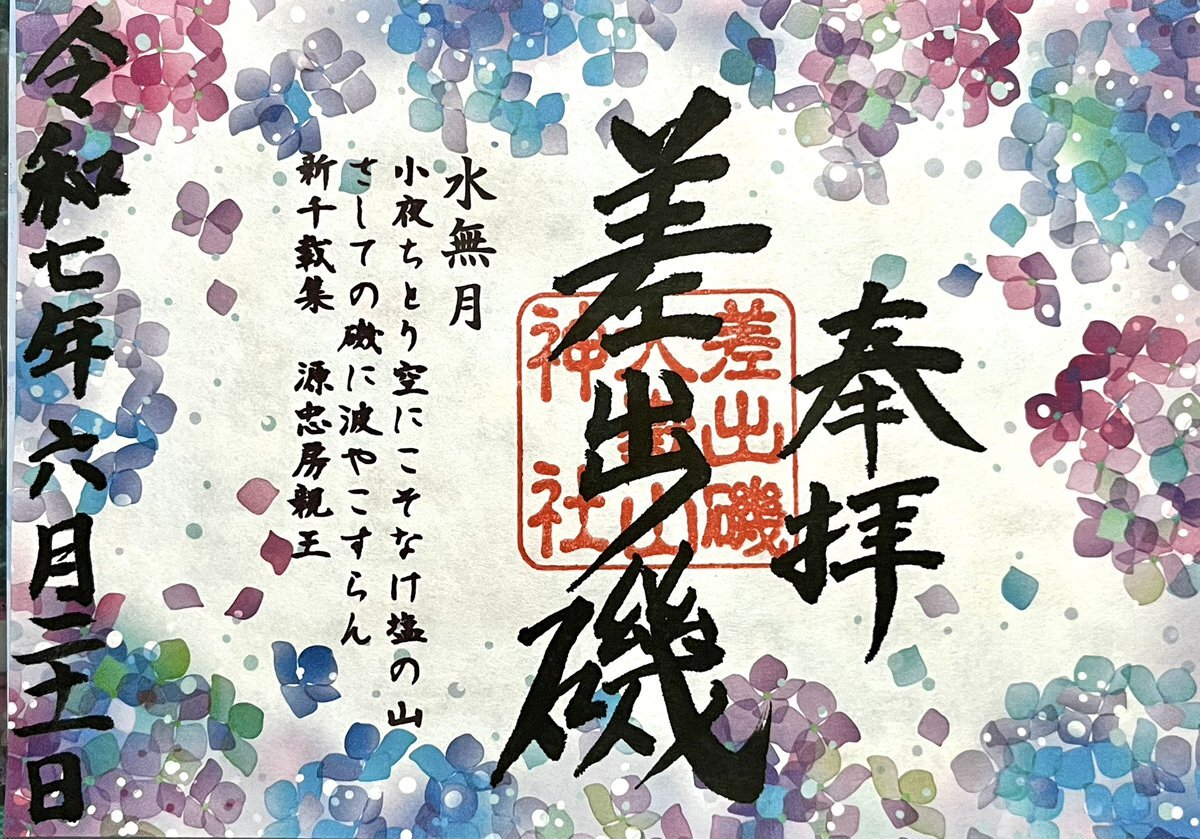 奉拝
差出磯
差出磯
大嶽山
神社
水無月
小夜ちとり空にこそなけ塩の山
さしての磯に波やこすらん
新千載集 源忠房親王
令和七年六月二十一日